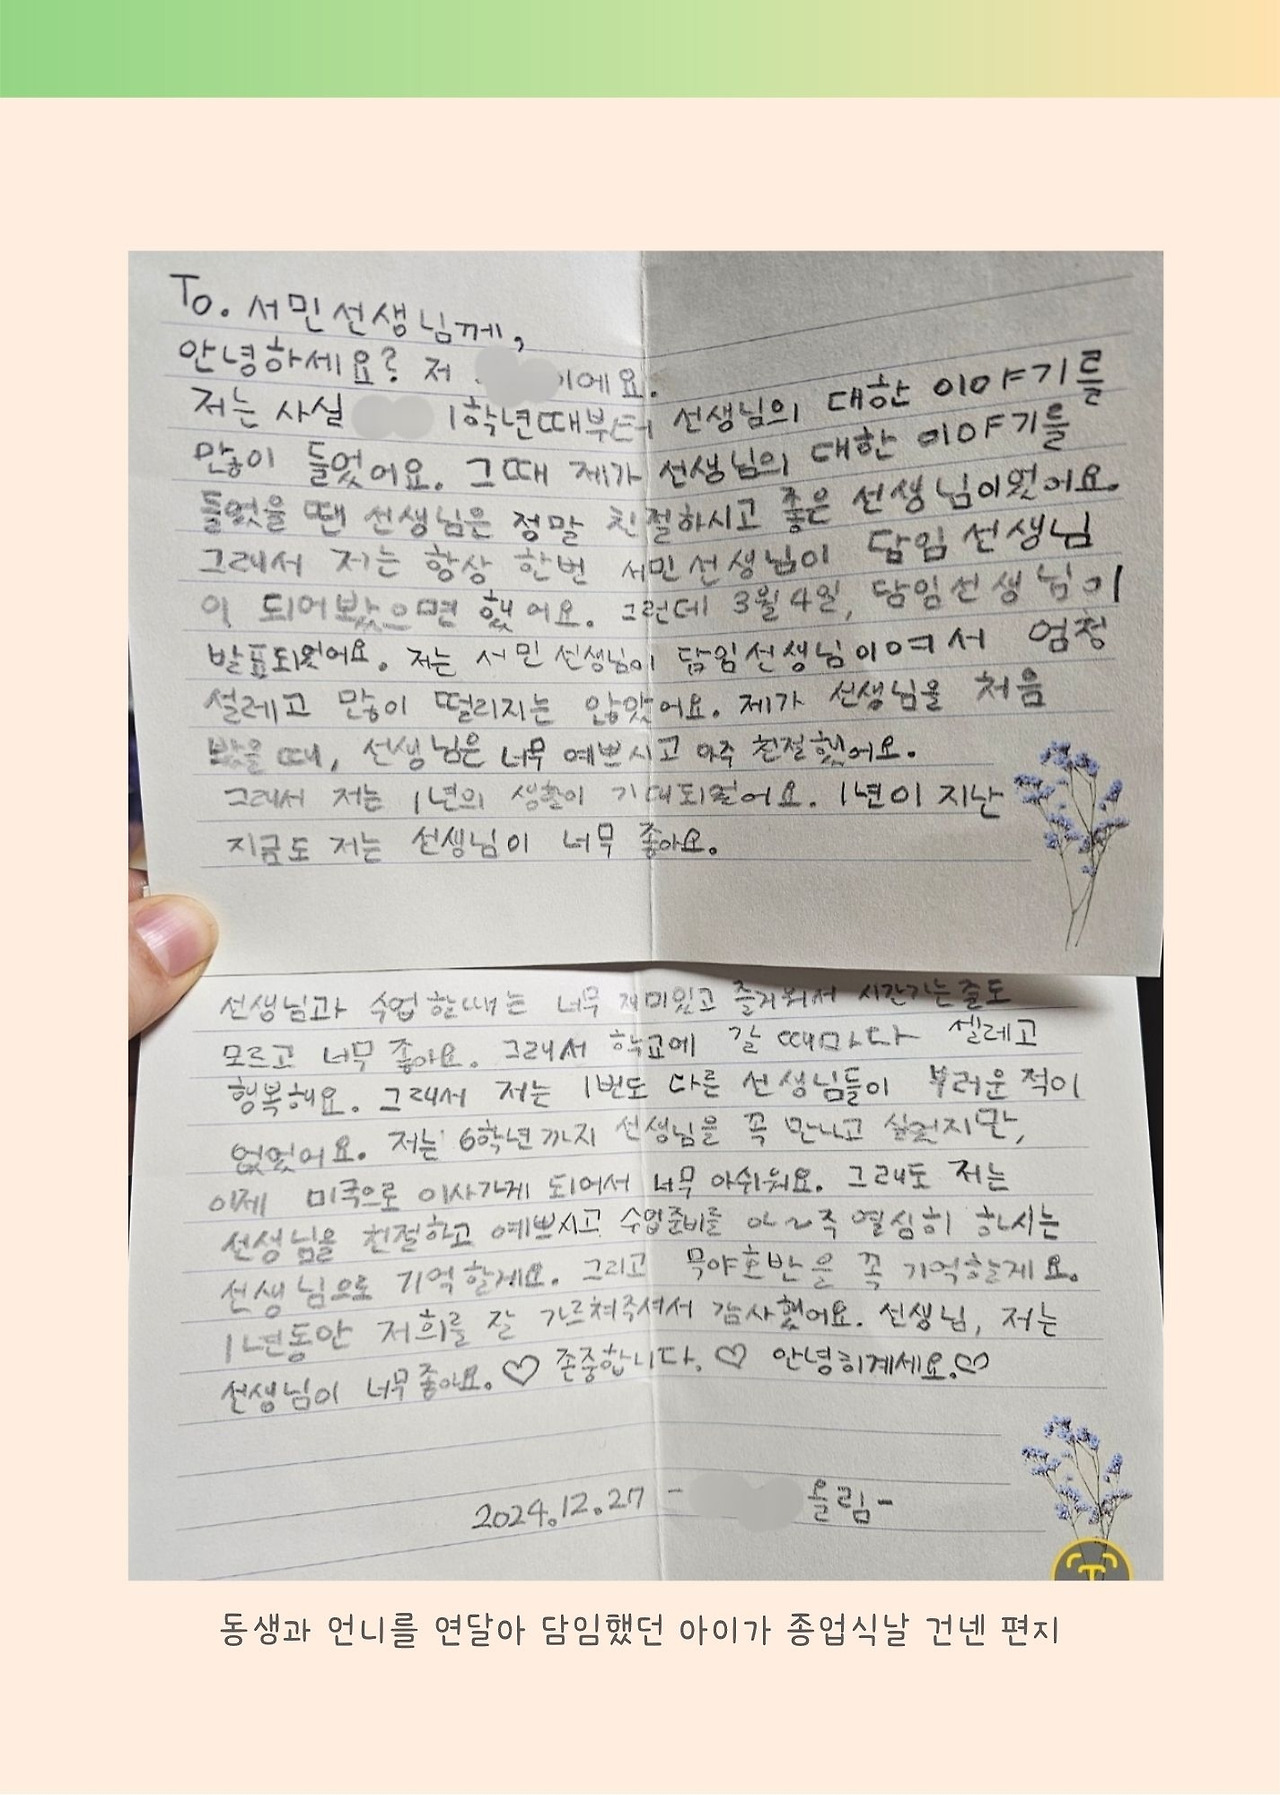 To. 서민선생님께,
안녕하세요? 저 이에요.
저는 사실 1학년때부터 선생님의 대한 이야기를
많이 들었어요. 그때 제가 선생님의 대한 이야기를
들었을 땐 선생님은 정말 친절하시고 좋은 선생님이었어요.
그래서 저는 항상 한번 서민선생님이 담임선생님
이 되어봤으면 했어요. 그런데 3월 4일, 담임선생님이
발표되었어요. 저는 서민 선생님이 담임선생님이여서 엄청
설레고 많이 떨리지는 않았어요. 제가 선생님을 처음
봤을 때, 선생님은 너무 예쁘시고 아주 친절했어요.
그래서 저는 1년의 생활이 기대되었어요. 1년이 지난
지금도 저는 선생님이 너무 좋아요.
선생님과 수업 할때는 너무 재미있고 즐거워서 시간가는줄도
모르고 너무 좋아요. 그래서 학교에 갈 때마다 셀레고
행복해요. 그래서 저는 1번도 다른 선생님들이 부러운적이
없었어요. 저는 6학년까지 선생님을 꼭 만나고 싶었지만,
이제 미국으로 이사가게 되어서 너무 아쉬워요. 그래도 저는
선생님을 친절하고 예쁘시고 수업준비를 아~주 열심히 하시는
선생님으로 기억할게요. 그리고 무야호반을 꼭 기억할게요.
1년동안 저희를 잘 가르쳐주셔서 감사했어요. 선생님, 저는
선생님이 너무좋아요.♡ 존중합니다.♡ 안녕히계세요.♡
2024.12.27 - 올림-
동생과 언니를 연달아 담임했던 아이가 종업식날 건넨 편지